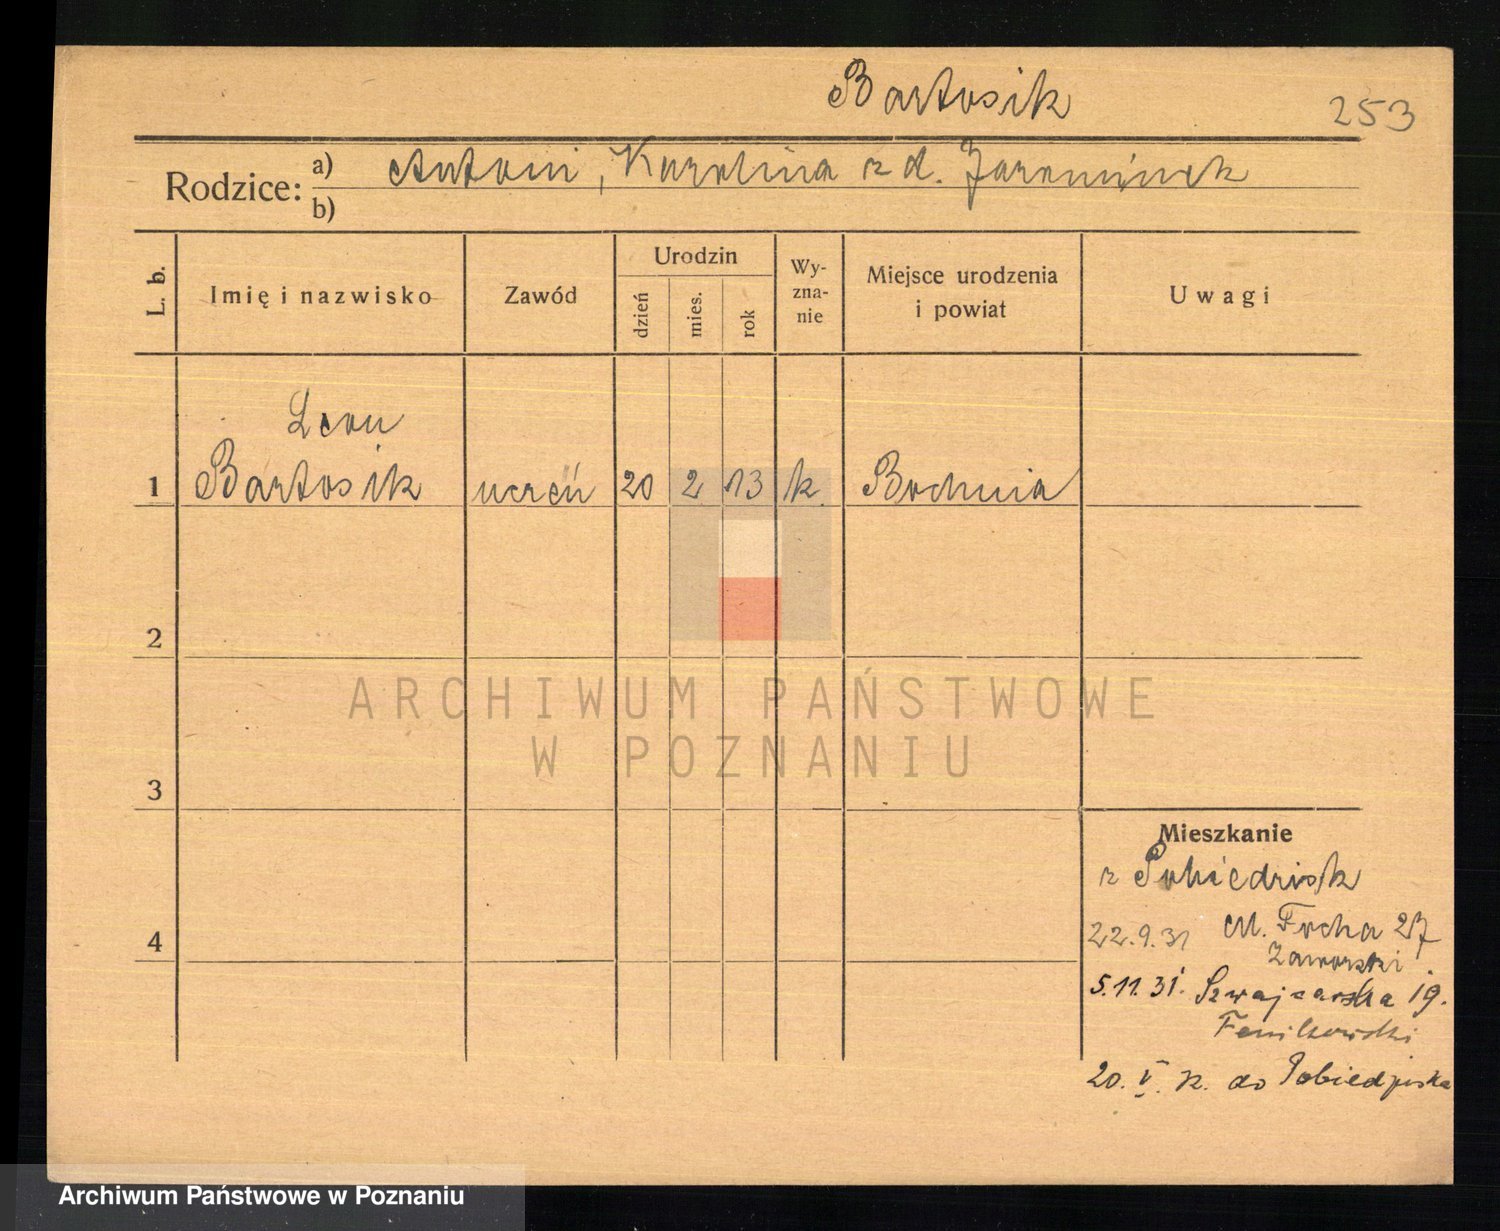 Bartosik
253
Rodzice: a) Antoni, Karolina z d.
b)
L. b.
Imię i nazwisko
Zawód
Urodzin
dzień
mies.
rok
Wy-
zna-
nie
Miejsce urodzenia
i powiat
Uwagi
Leon
1 Bartosik uczeń 20 2 13 k. Bochnia
2
ARCHIWUM PAŃSTWOWE
W POZNANIU
3
Mieszkanie
z Pobiedzisk
4
22.9.31 M. Focha 27
Zaworski
5.11.31. Szwajcarska 19.
20. V. do Pobiedziska
Archiwum Państwowe w Poznaniu